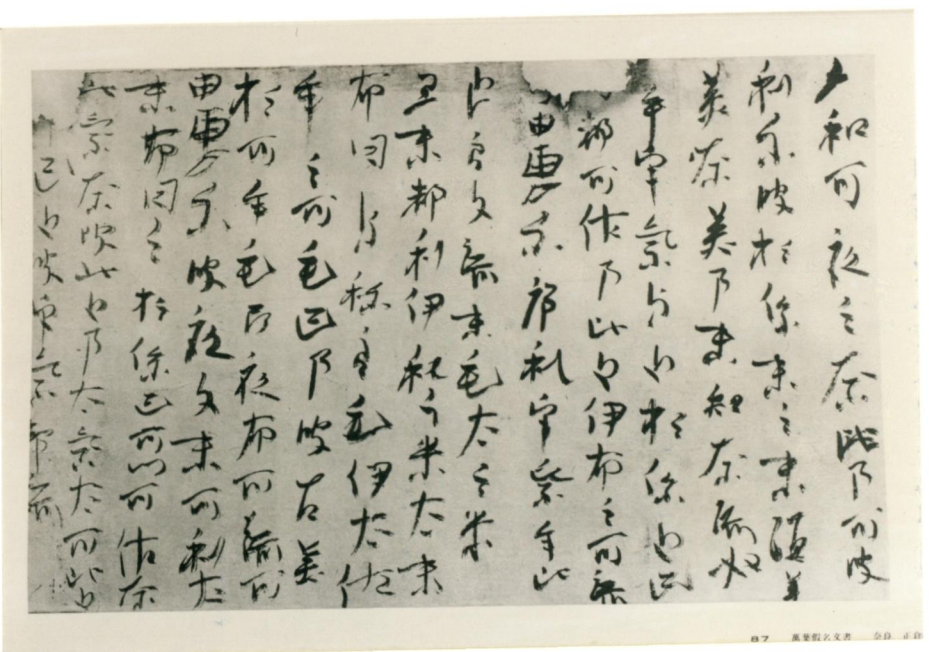 和可夜之奈比乃可波
利尓波於保末之末須美
美奈美乃末知奈流奴
乎宇気与止於保止己
都可佐乃比止伊布之可流
由恵尓序礼宇気牟比
止良久流末毛太之米
弖末都利伊礼之米太末
布日与祢良毛伊太佐
牟之可毛己乃波古美
於可牟毛阿夜布可流可
由恵尓波夜久末可利太
末布日之於保己可川可佐奈
比気奈波比止乃太気太可比止
己止波宇気都流
87 萬葉假名文書 奈良 正倉